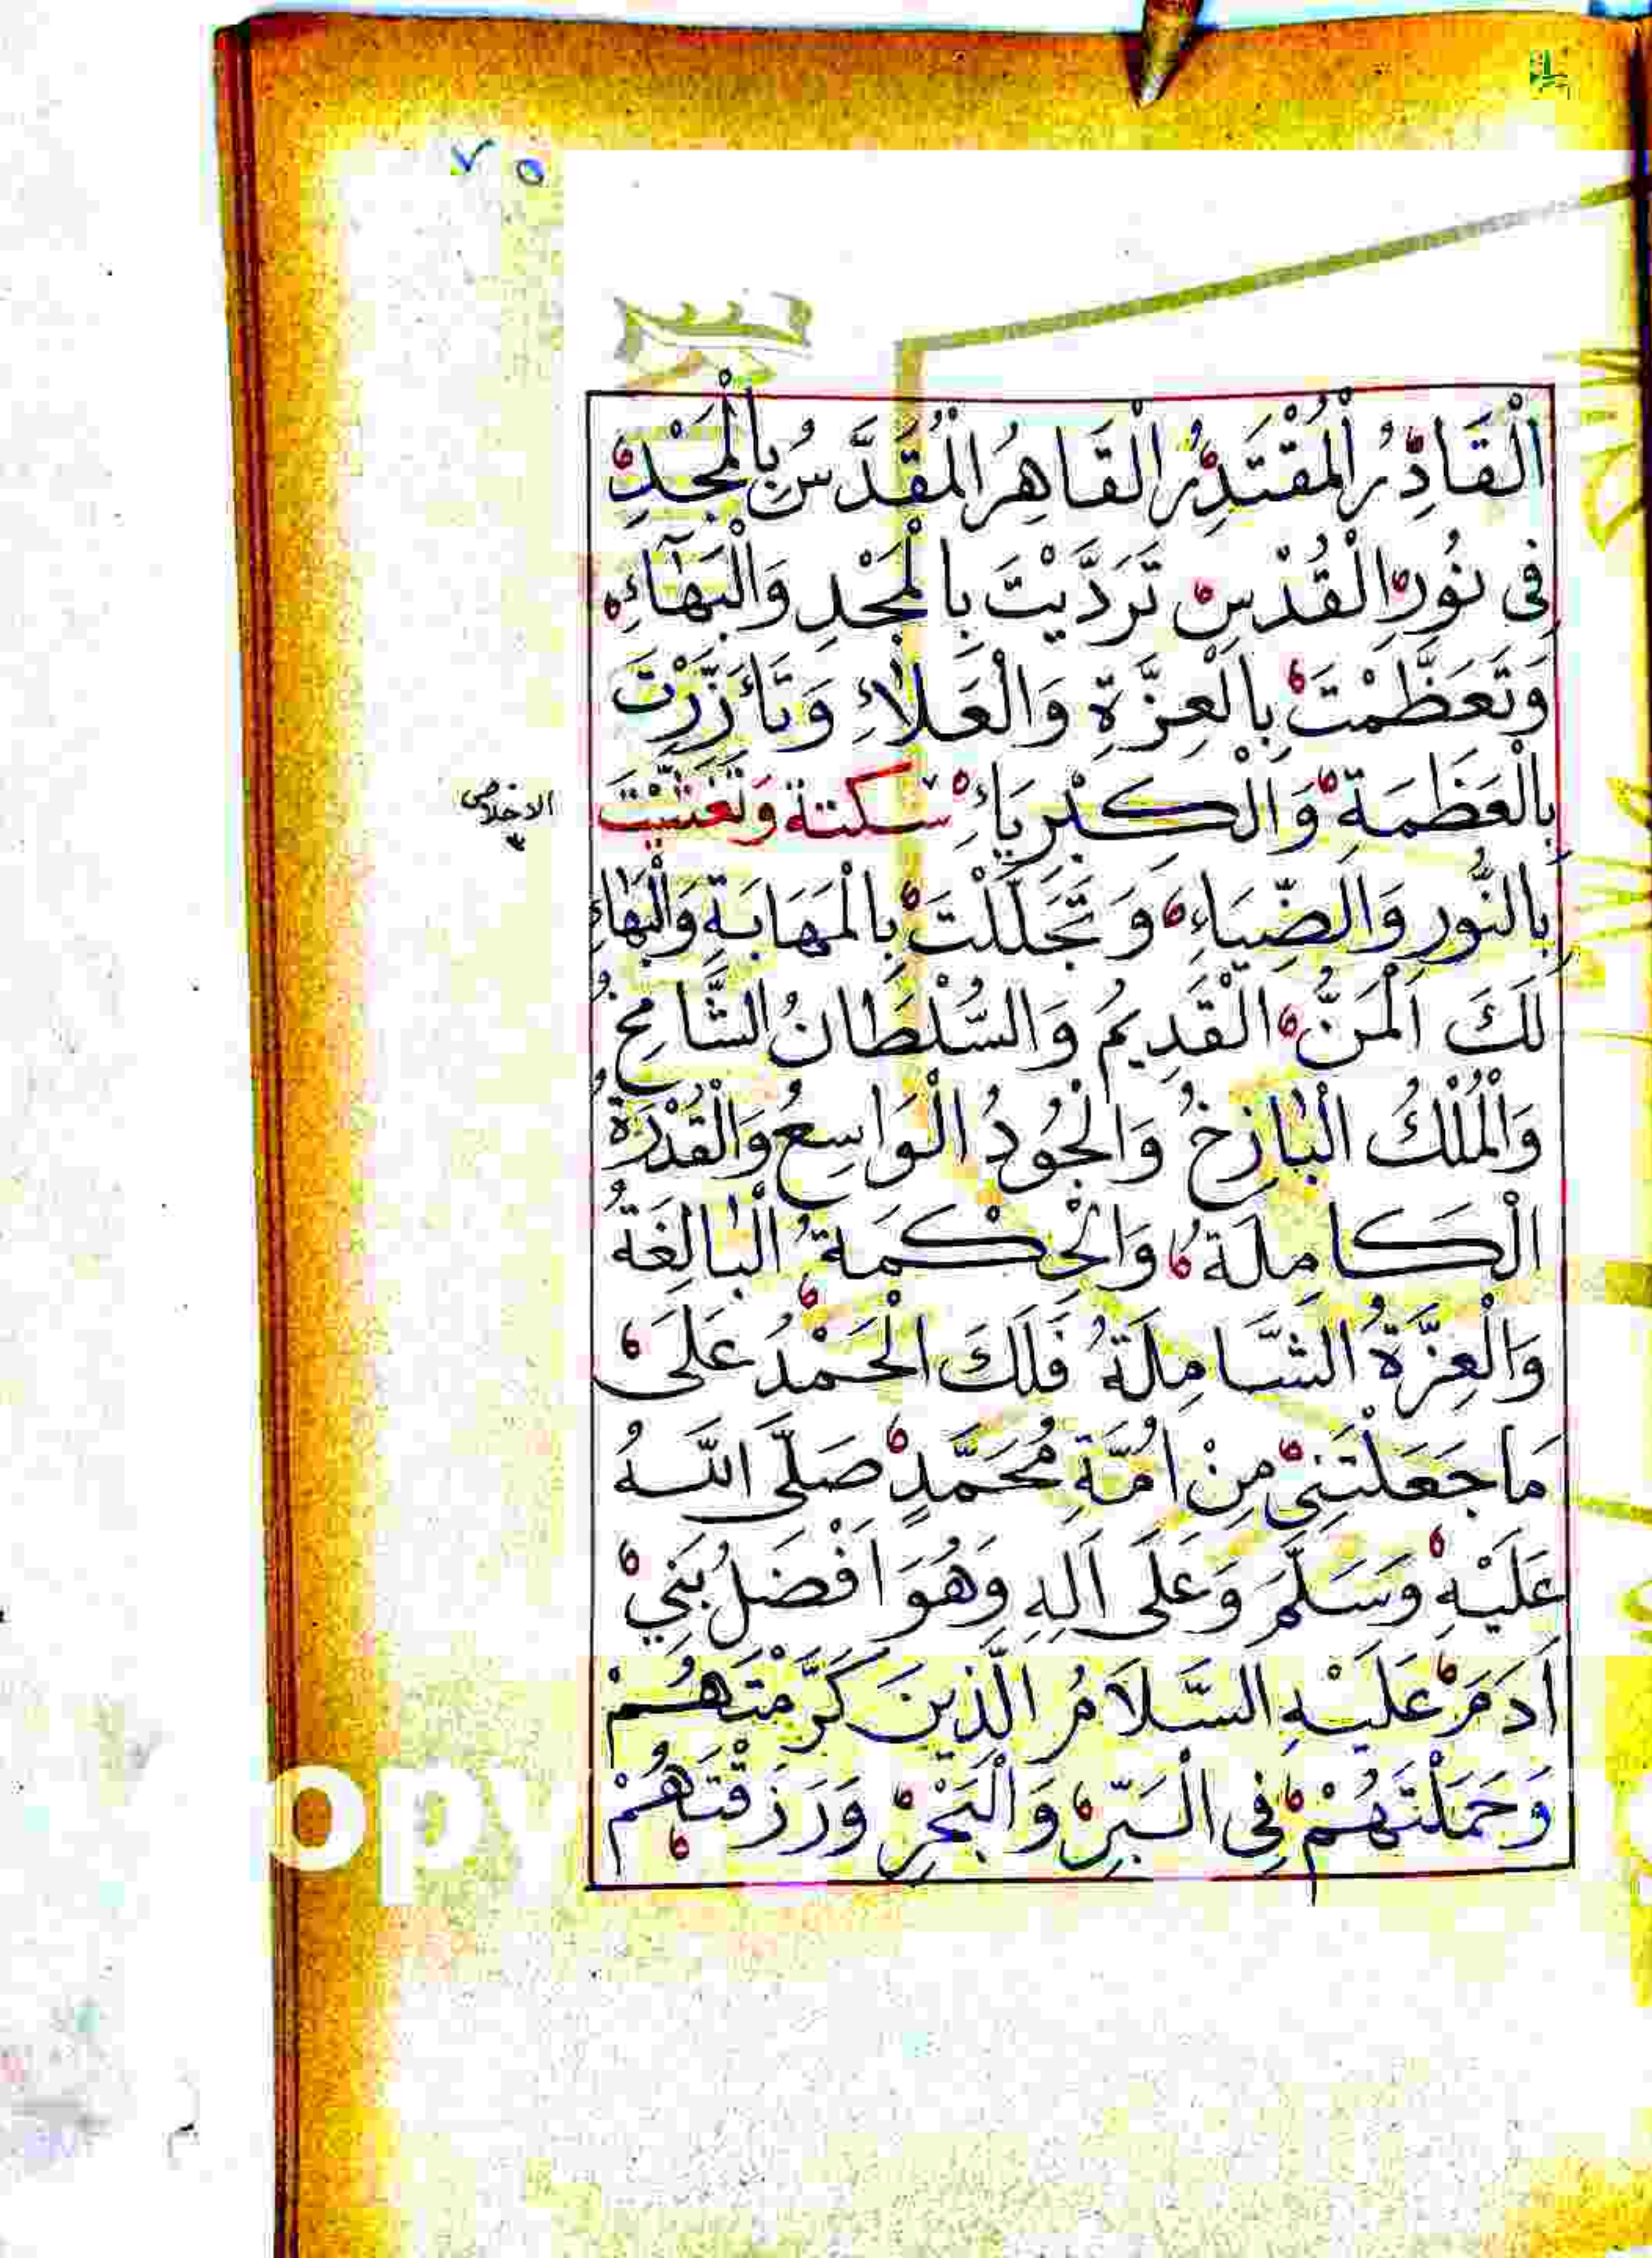 ٧٥
الْقَادِرُ الْمُقْتَدِرُ الْقَاهِرُ الْمُقَدَّسُ بِالْمَجْدِ
فِى نُورِ الْقُدْسِ تَرَدَّيْتَ بِالْمَجْدِ وَالْبَهَآءِ
وَتَعَظَّمْتَ بِالْعِزَّةِ وَالْعَلَاءِ وَتَأَزَّرْتَ
بِالْعَظَمَةِ وَالْكِبْرِيَاءِ سكتة وَتَغَشَّيْتَ
الاخلاص
٣
بِالنُّورِ وَالضِّيَاءِ وَتَجَلَّلْتَ بِالْمَهَابَةِ وَالْبَهَاءِ
لَكَ الْمَنُّ الْقَدِيمُ وَالسُّلْطَانُ الشَّامِخُ
وَالْمُلْكُ الْبَاذِخُ وَالْجُودُ الْوَاسِعُ وَالْقُدْرَةُ
الْكَامِلَةُ وَالْحِكْمَةُ الْبَالِغَةُ
وَالْعِزَّةُ الشَّامِلَةُ فَلَكَ الْحَمْدُ عَلَى
مَا جَعَلْتَنِي مِنْ اُمَّةِ مُحَمَّدٍ صَلَّى اللَّهُ
عَلَيْهِ وَسَلَّمَ وَعَلَى اَلِهِ وَهُوَ اَفْضَلُ بَنِي
اَدَمَ عَلَيْهِ السَّلَامُ الَّذِينَ كَرَّمْتَهُمْ
وَحَمَلْتَهُمْ فِى الْبَرِّ وَالْبَحْرِ وَرَزَقْتَهُمْ
opy